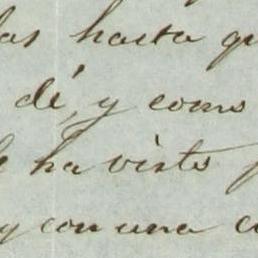 las hasta qu
dé, y como
le ha visto p
y con una c